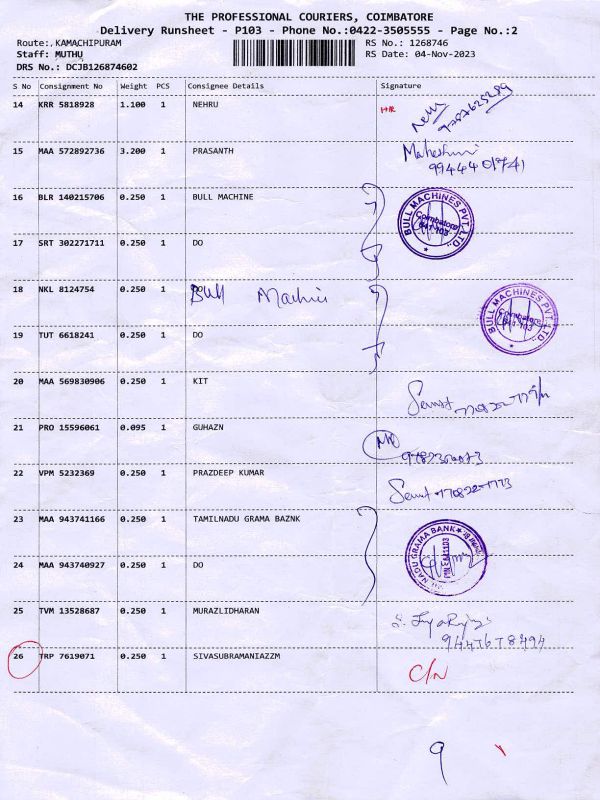 THE PROFESSIONAL COURIERS, COIMBATORE
Delivery Runsheet - P103 - Phone No.:0422-3505555 - Page No.:2
Route:, KAMACHIPURAM RS No.: 1268746
Staff: MUTHU RS Date: 04-Nov-2023
DRS No.: DCJB126874602
S No Consignment No Weight PCS Consignee Details Signature
14 KRR 5818928 1.100 1 NEHRU
15 MAA 572892736 3.200 1 PRASANTH
16 BLR 140215706 0.250 1 BULL MACHINE BULL MACHINES PVT. LTD. Coimbatore 641 103
17 SRT 302271711 0.250 1 DO
18 NKL 8124754 0.250 1 Bull Machine BULL MACHINES PVT. LTD. Coimbatore 641 103
19 TUT 6618241 0.250 1 DO
20 MAA 569830906 0.250 1 KIT
21 PRO 15596061 0.095 1 GUHAZN
22 VPM 5232369 0.250 1 PRAZDEEP KUMAR
23 MAA 943741166 0.250 1 TAMILNADU GRAMA BAZNK NADU GRAMA BANK
24 MAA 943740927 0.250 1 DO
25 TVM 13528687 0.250 1 MURAZLIDHARAN
26 TRP 7619071 0.250 1 SIVASUBRAMANIAZZM C/N
9